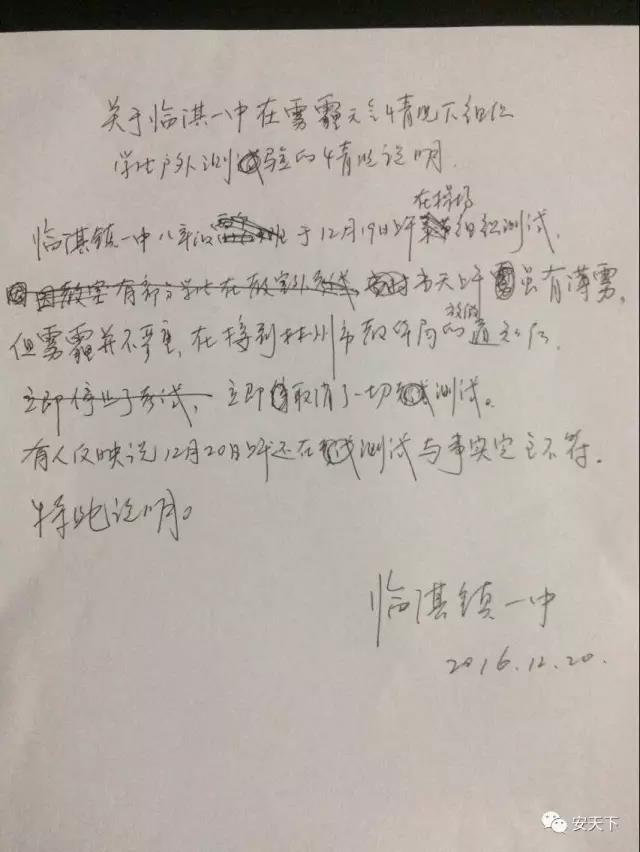 关于临淇一中在雾霾天气情况下组织
学生户外测试验的情况说明.
在操场
临淇镇一中八年级 于12月19日上午 组织测试,
因教室有部分学生在教室外考试, 当天上午 虽有薄雾,
放假
但雾霾并不严重,在接到林州市教体局的通知后,
立即停止了考试, 立即取消了一切 测试。
有人反映说12月20日上午还在 测试与事实完全不符.
特此说明。
临淇镇一中
2016.12.20.
安天下